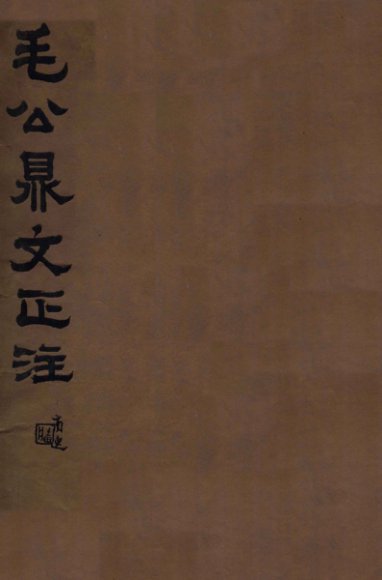 毛公鼎文正注